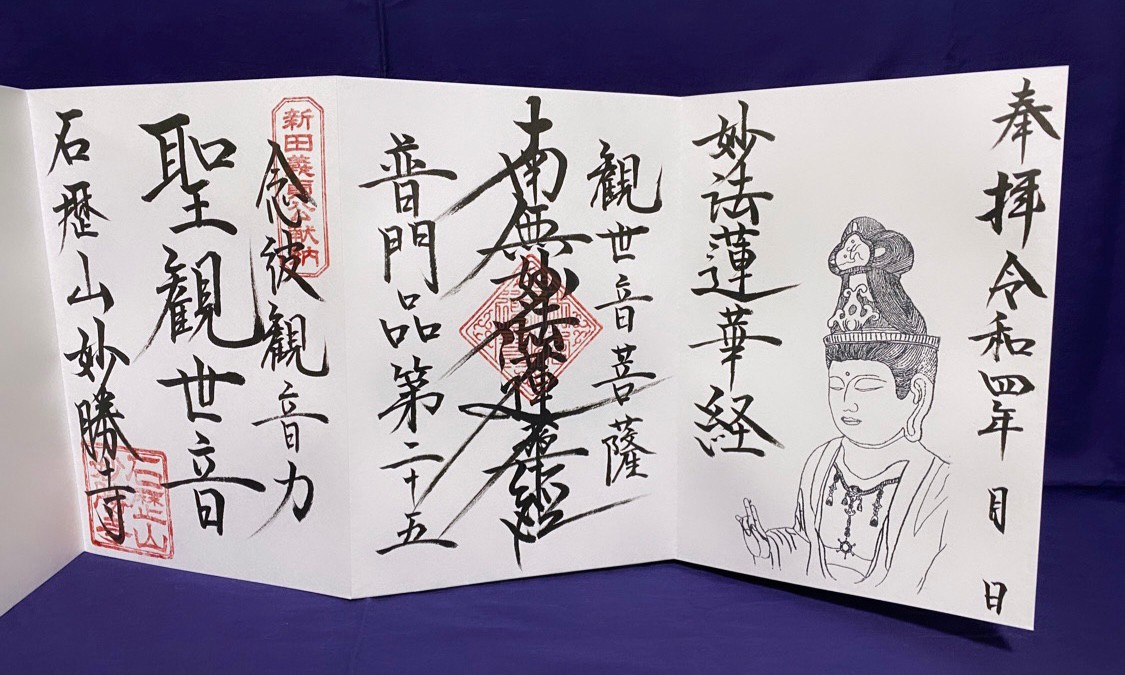 奉拝 令和四年 月 日
妙法蓮華経
観世音菩薩
南無妙法蓮華経
普門品第二十五
新田義貞公献納
念彼観音力
聖観世音
石歴山妙勝寺